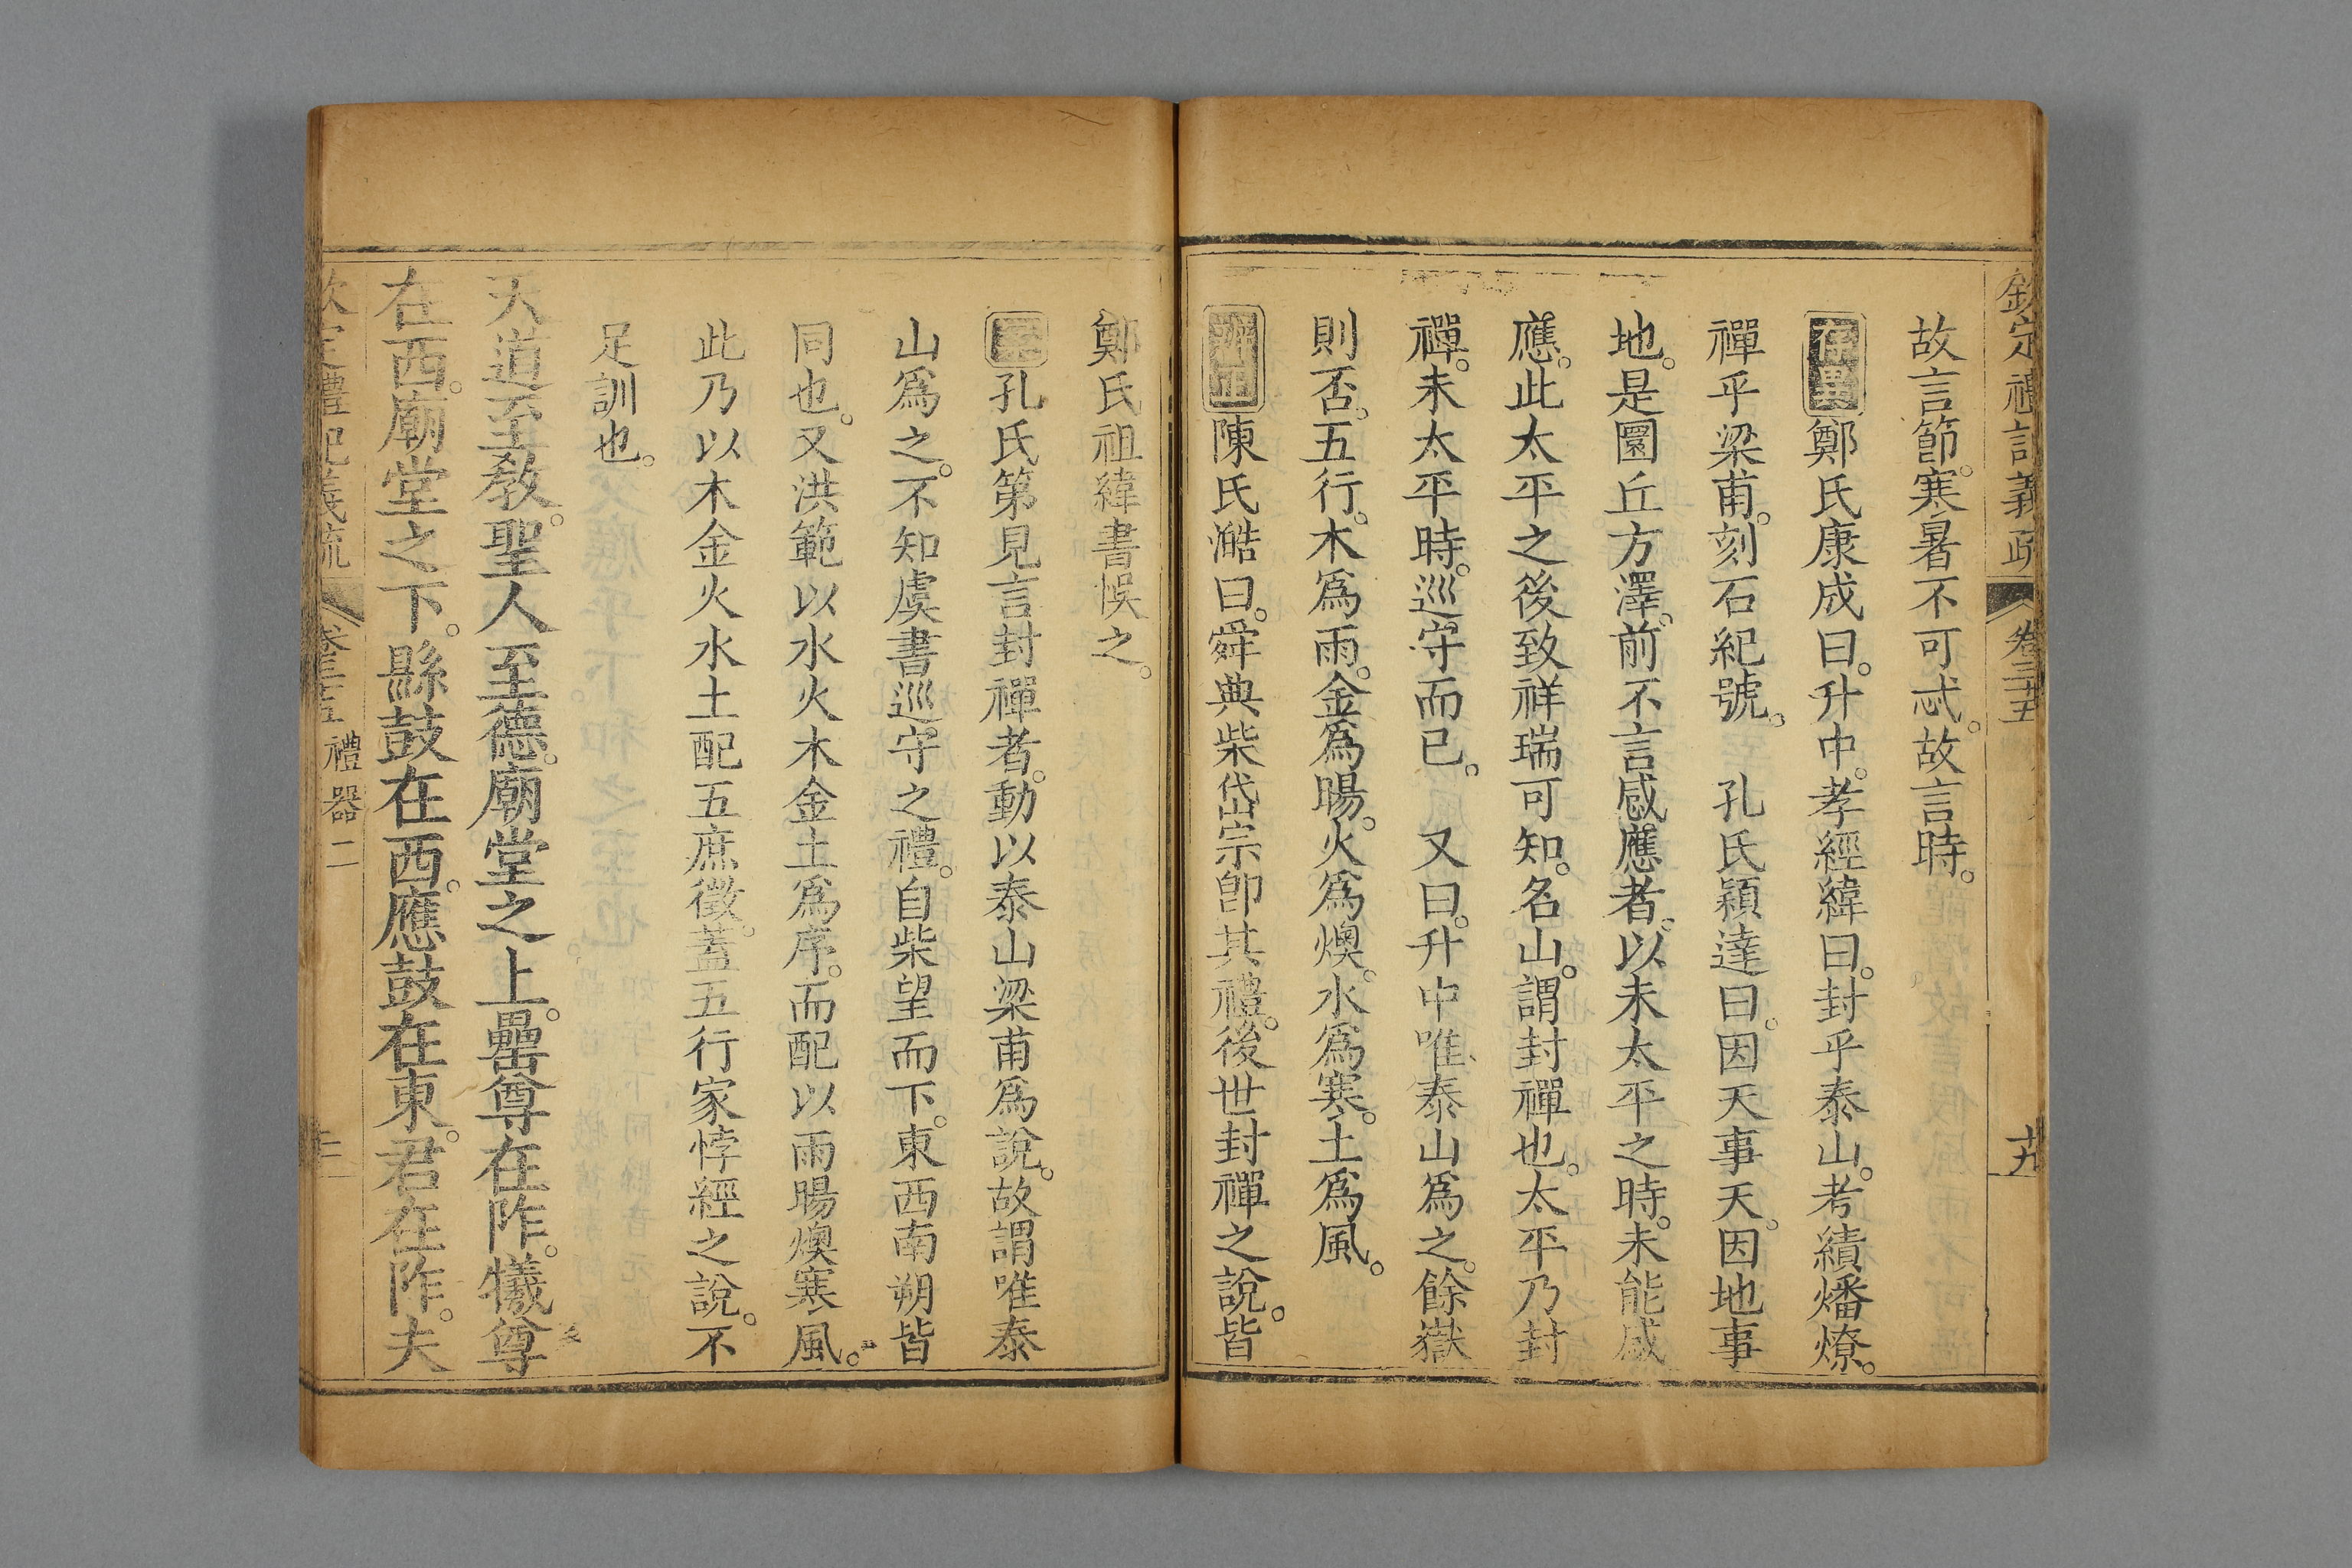 欽定禮記義疏 卷三十五
故言節。寒暑不可忒。故言時。
存異鄭氏康成曰。升中。孝經緯曰。封乎泰山。考績燔燎。
禪乎梁甫。刻石紀號。 孔氏穎達曰。因天事天。因地事
地。是圜丘方澤。前不言感應者。以未太平之時。未能感
應。此太平之後致祥瑞可知。名山。謂封禪也。太平乃封
禪。未太平時。巡守而已。 又曰。升中唯泰山爲之。餘嶽
則否。五行。木爲雨。金爲暘。火爲燠。水爲寒。土爲風。
辨正陳氏澔曰。舜典柴岱宗卽其禮。後世封禪之說。皆
鄭氏祖緯書悞之。
孔氏第見言封禪者。動以泰山梁甫爲說。故謂唯泰
山爲之。不知虞書巡守之禮。自柴望而下。東西南朔皆
同也。又洪範以水火木金土爲序。而配以雨暘燠寒風。
此乃以木金火水土配五庶徵。蓋五行家悖經之說。不
足訓也。
天道至敎。聖人至德。廟堂之上。罍尊在阼。犧尊
在西。廟堂之下。縣鼓在西。應鼓在東。君在阼。夫
欽定禮記義疏 卷三十五 禮器二